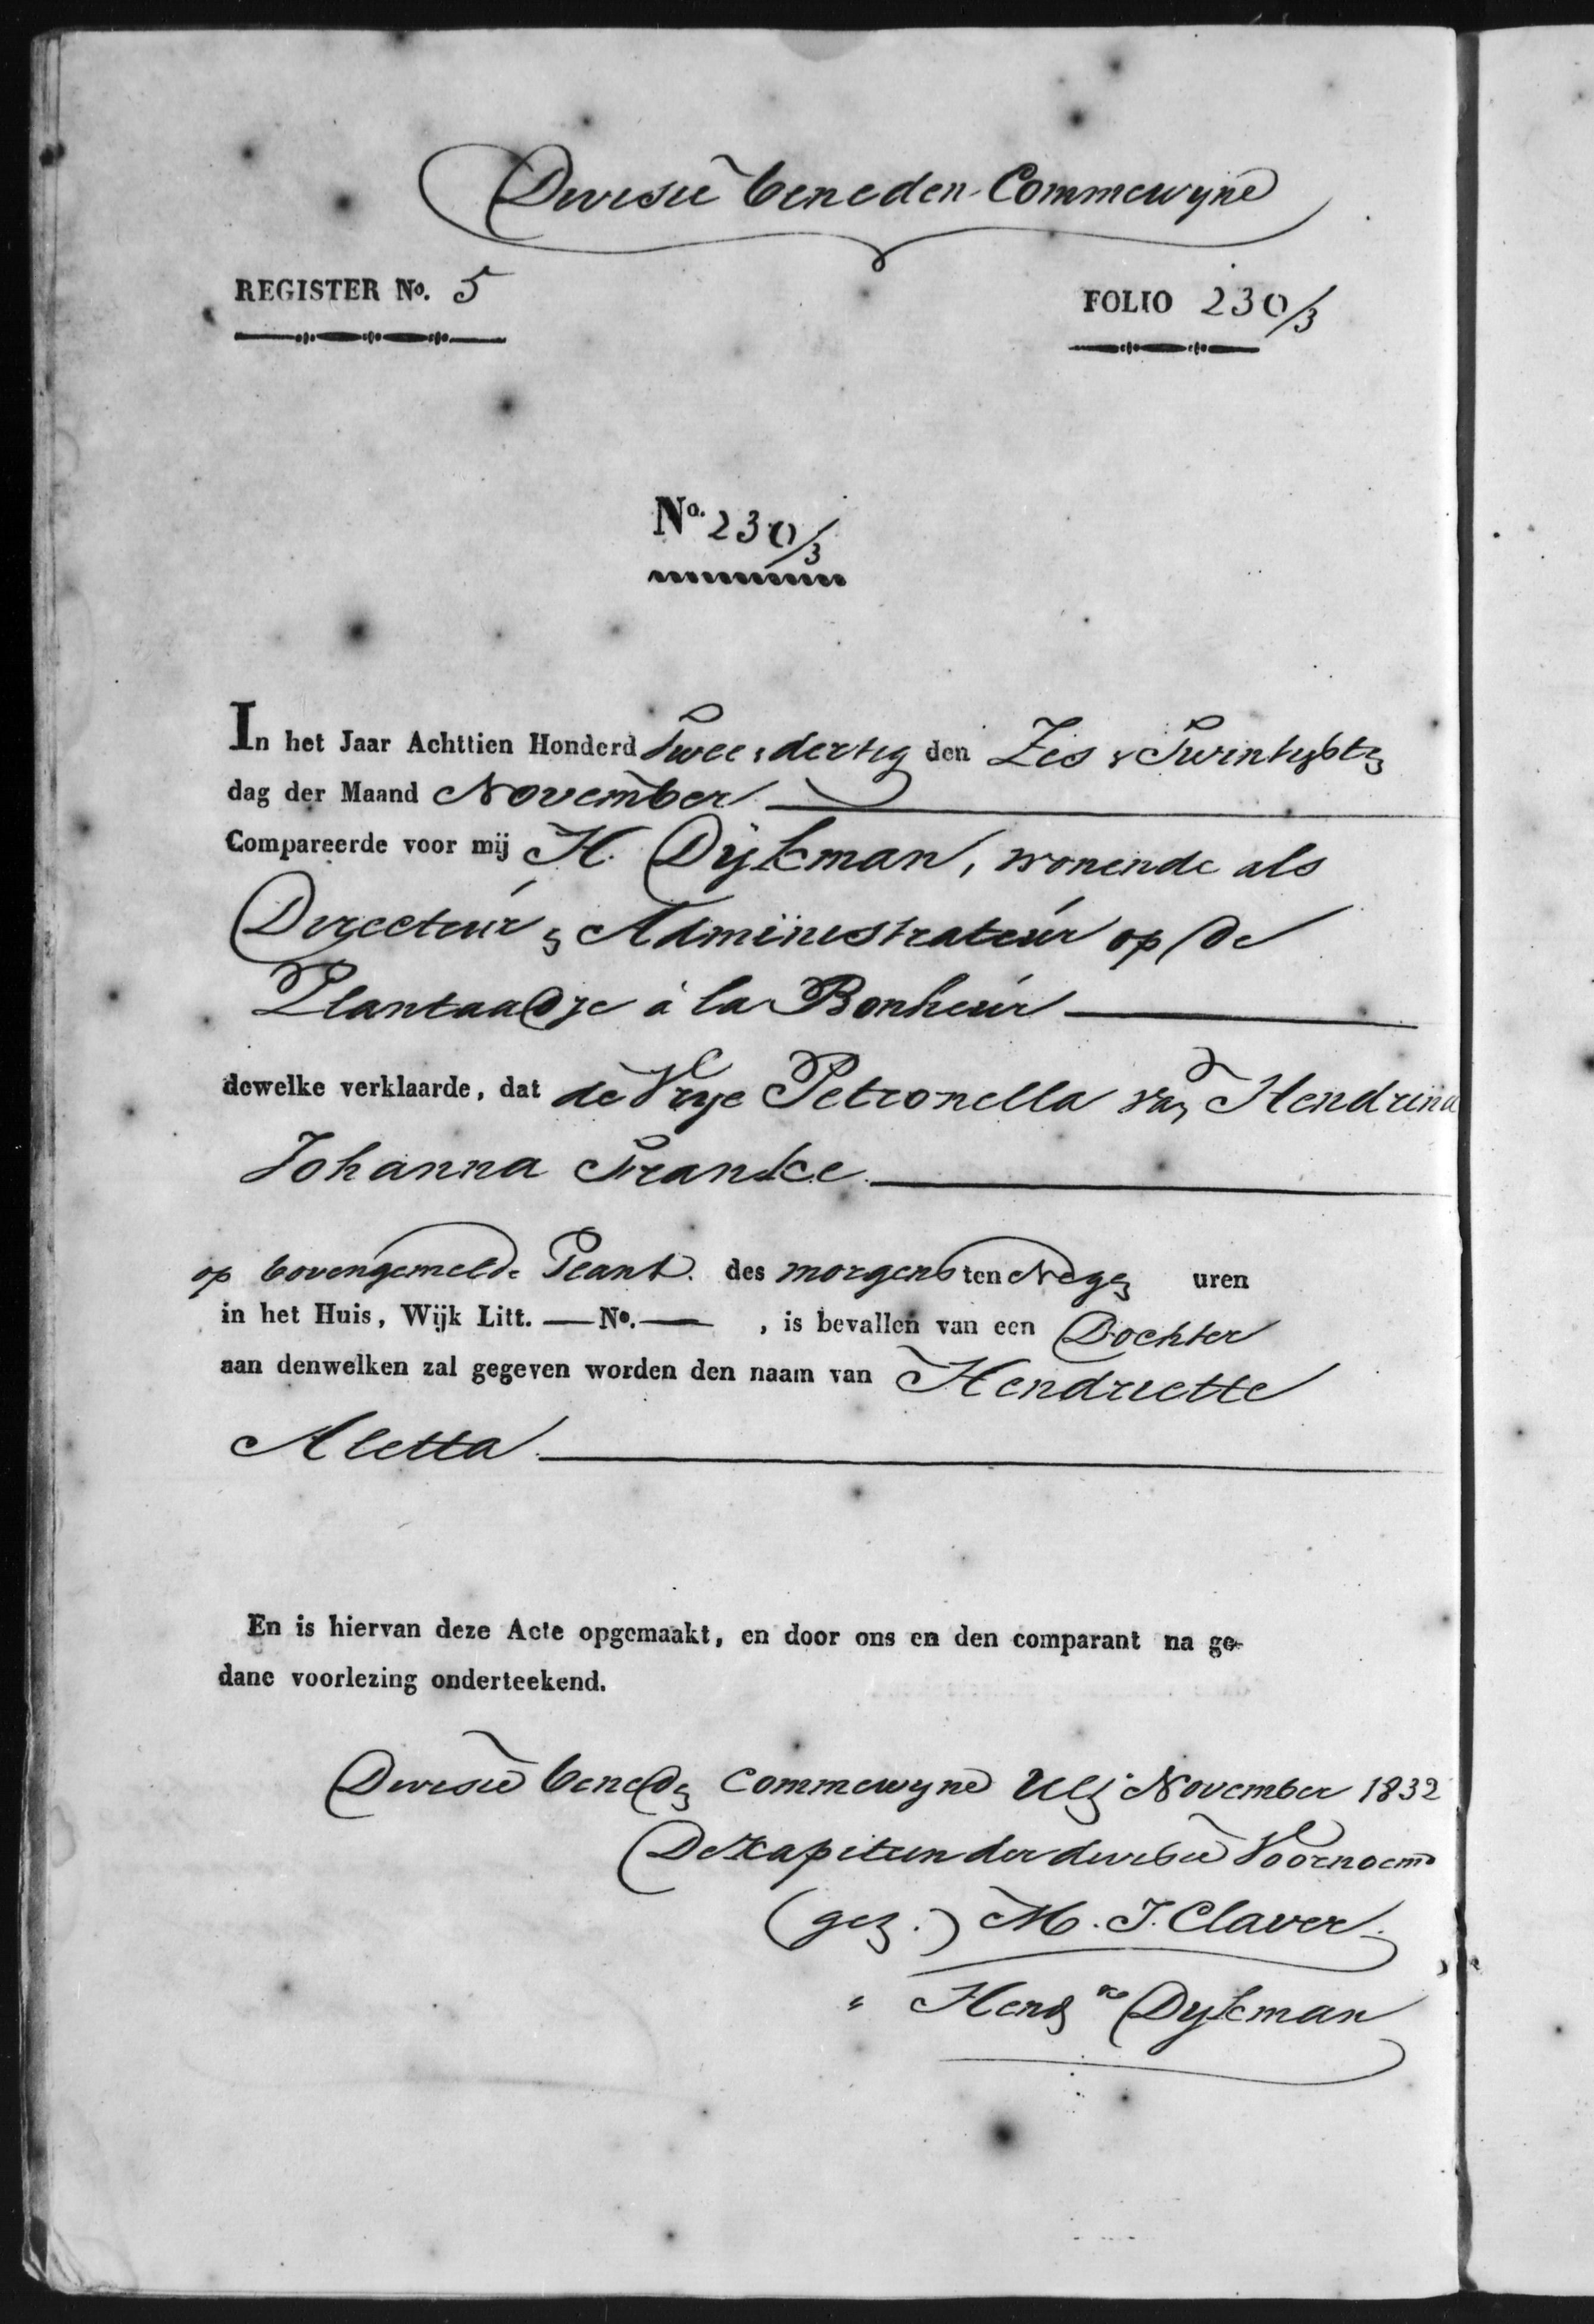 Divisie beneden Commewyne
REGISTER No. 5
FOLIO 230/3
No. 230/3
In het Jaar Achttien Honderd Twee & dertig den Zes & Twintigsten
dag der Maand November
Compareerde voor mij H. Dykman, wonende als
Directeur & Administrateur op de
Plantaadje à la Bonheur
dewelke verklaarde, dat de Vrye Petronella van Hendrina
Johanna Franke
op bovengemelde Plant. des morgens ten Negen uren
in het Huis, Wijk Litt. — No. — , is bevallen van een Dochter
aan denwelken zal gegeven worden den naam van Hendriette
Aletta
En is hiervan deze Acte opgemaakt, en door ons en den comparant na ge-
dane voorlezing onderteekend.
Divisie beneden Commewyne November 1832
De Kapitein der divisie Voornoemd
(gez.) M. J. Claver
" Dykman